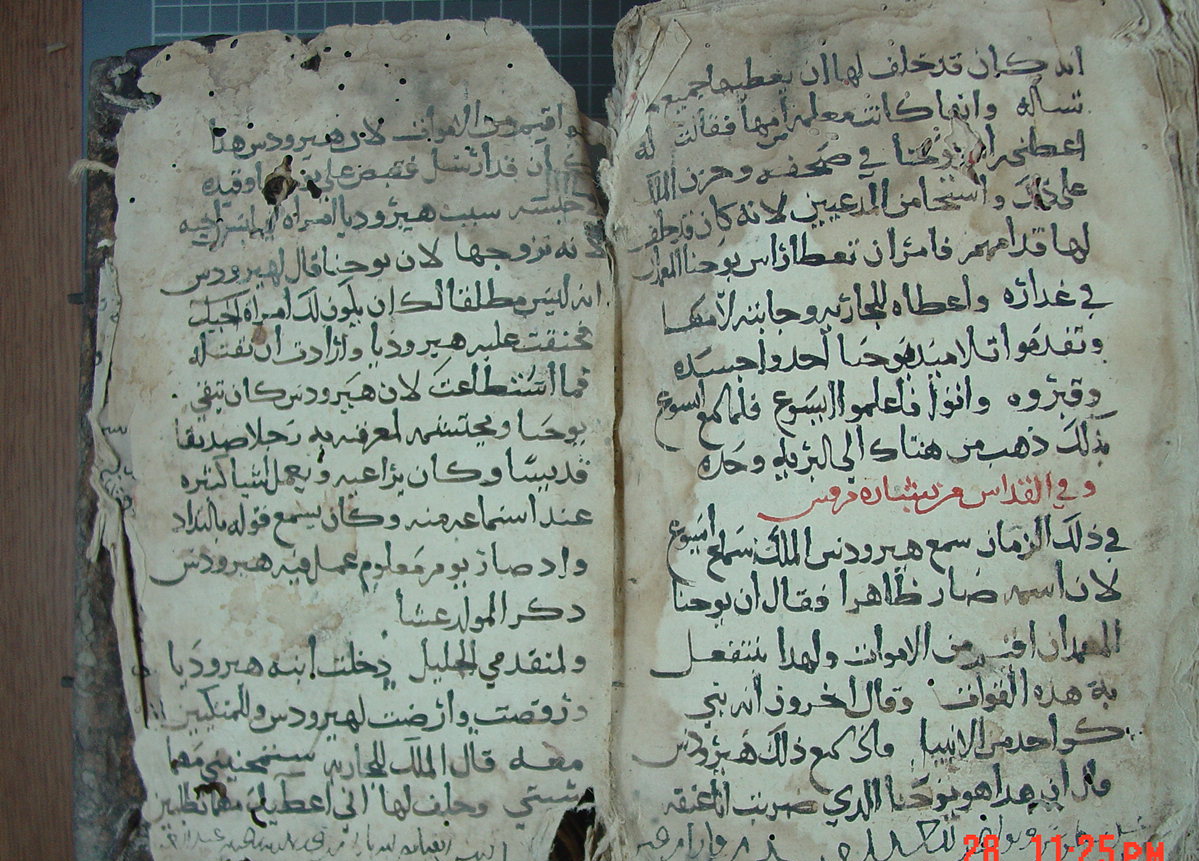 انه كان قد حلف لها أن يعطيها جميع ما
تساله وانها كانت معلمه من أمها فقالت له
اعطني راس يوحنا في صحفه وحزن الملك
على ذلك واستحا من المدعيين لانه كان قد حلف
لها قدامهم فامر ان تعطا راس يوحنا المعمدان
في غداره واعطاه للجاريه وجابته لامها
وتقدموا تلاميد يوحنا أحدوا جسده
وقبروه واتوا فاعلموا اليسوع فلما سمع ايسوع
بذلك ذهب من هناك الى البريه وحده
وفي القداس من بشاره مرقس
في ذلك الزمان سمع هيرودس الملك سماع ايسوع
لان اسمه صار ظاهرا فقال ان يوحنا
المعمدان اقيم من الاموات ولهدا تنفعل
به هده القوات وقال اخرون انه نبي
كواحد من الانبيا فلما سمع ذلك هيرودس
قال ان هدا هو يوحنا الدي ضربت انا عنقه
اقيم من الاموات لان هيرودس هذا
كان قد ارسل فقبض على يوحنا وقيده
في حبسه سبب هيروديا امراه فيلبس اخيه
لانه تزوجها لان يوحنا قال لهيرودس
انه ليس مطلقا لك ان يكون لك امراه اخيك
فحنقت عليه هيروديا وارادت ان تقتله
فما استطاعت لان هيرودس كان يتقي
يوحنا ويحتشمه لمعرفته به رجلا صديقا
قديسا وكان يراعيه ويعمل اشيا كثيره
عند استماعه منه وكان يسمع قوله بالتداد
واد صار يوم معلوم عمل فيه هيرودس
دكر المولد عشا
ولمتقدمي الجليل دخلت ابنه هيروديا
ورقصت وارضت لهيرودس وللمتكيين
معه قال الملك للجاريه ستمنحيني مهما
شيتي وحلف لها اني اعطيك مهما تطلبين
28 11:25 PM